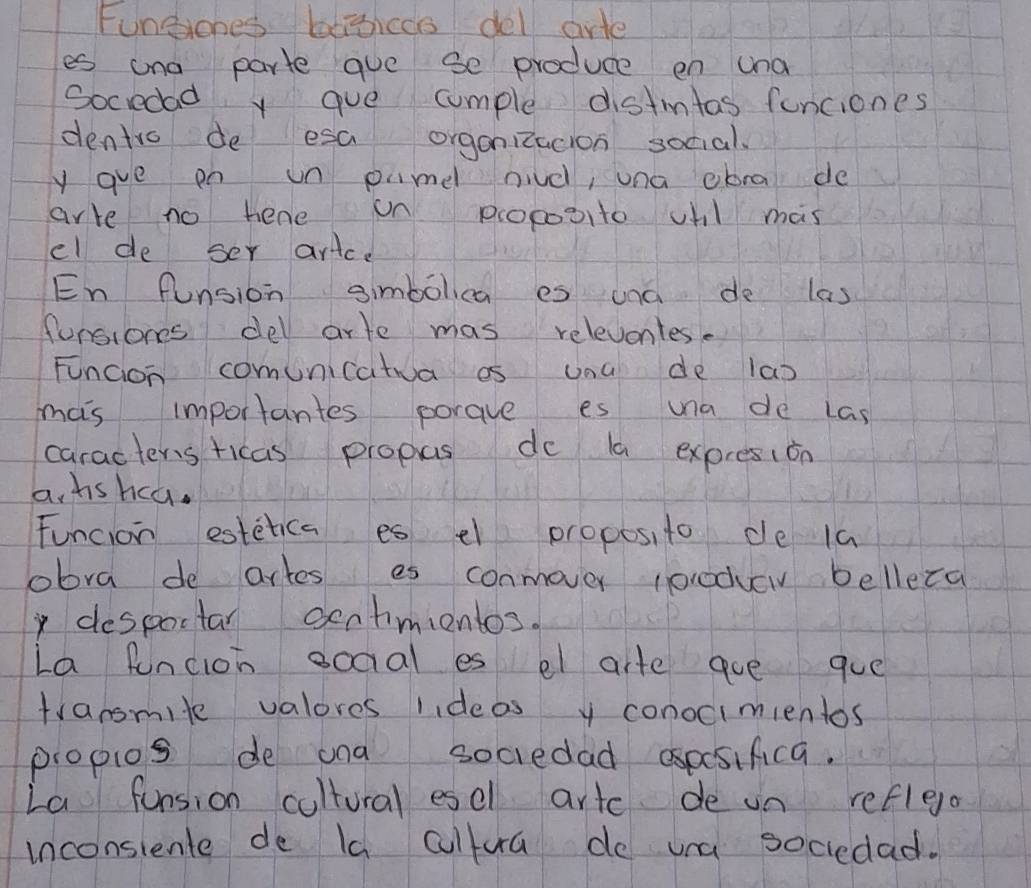 Funsiones básicas del arte
es una parte que se produce en una
Sociedad y que cumple distintas funciones
dentro de esa organización social.
y que en un primel nivel, una obra de
arte no tiene un proposito util más
el de ser arte.
En funsión simbólica es una de las
funsiones del arte mas relevantes.
Función comunicativa es una de las
más importantes porque es una de las
caracteristicas propias de la expresión
artistica.
Función estética es el proposito de la
obra de artes es conmover producir belleza
y despertar sentimientos.
La función social es el arte que que
transmite valores, ideas y conocimientos
propios de una sociedad espesifica.
La funsion cultural es el arte de un reflejo
inconsiente de la cultura de una sociedad.